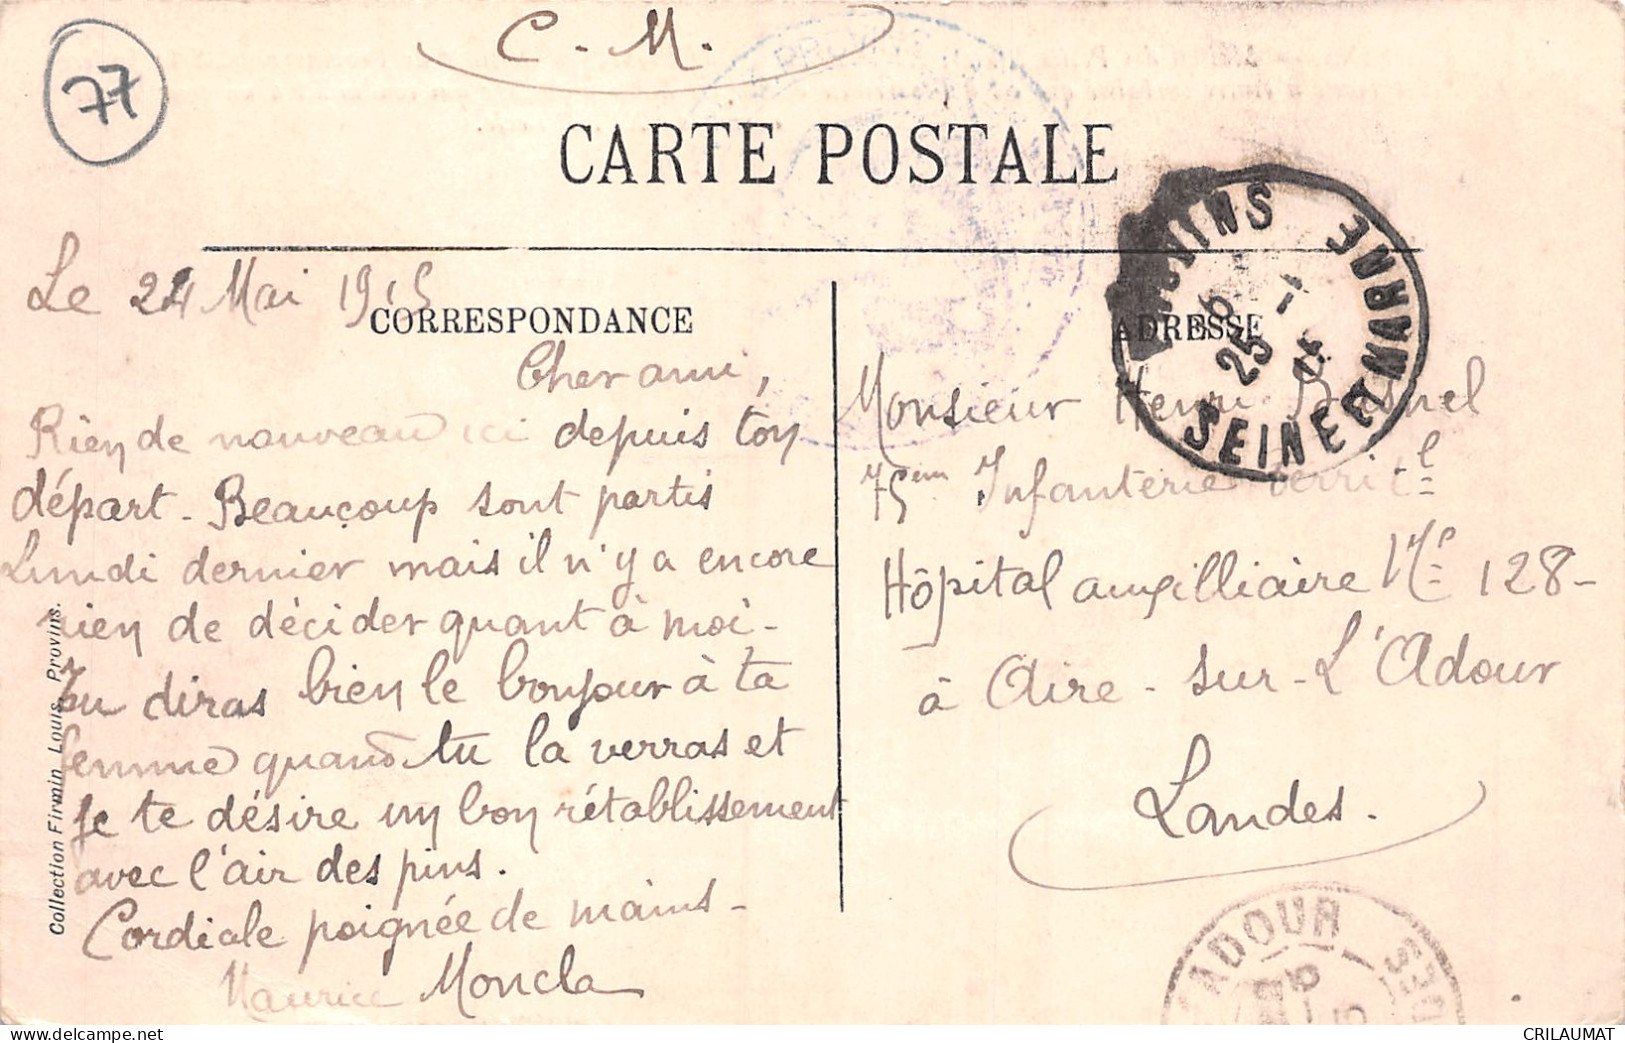 77
C. M.
CARTE POSTALE
PROVINS
SEINE ET MARNE
25
Le 24 Mai 1915
CORRESPONDANCE
ADRESSE
Cher ami,
Rien de nouveau ici depuis ton
départ. Beaucoup sont partis
Lundi dernier mais il n'y a encore
rien de décider quant à moi.
Tu diras bien le bonjour à ta
femme quand tu la verras et
je te désire un bon rétablissement
avec l'air des pins.
Cordiale poignée de mains.
Maurice Moncla
Monsieur Henri
75em Infanterie territle
Hôpital auxilliaire No 128-
à Aire-sur-L'Adour
Landes.
Collection Firmin Louis. Provins.
ADOUR
CRILAUMAT